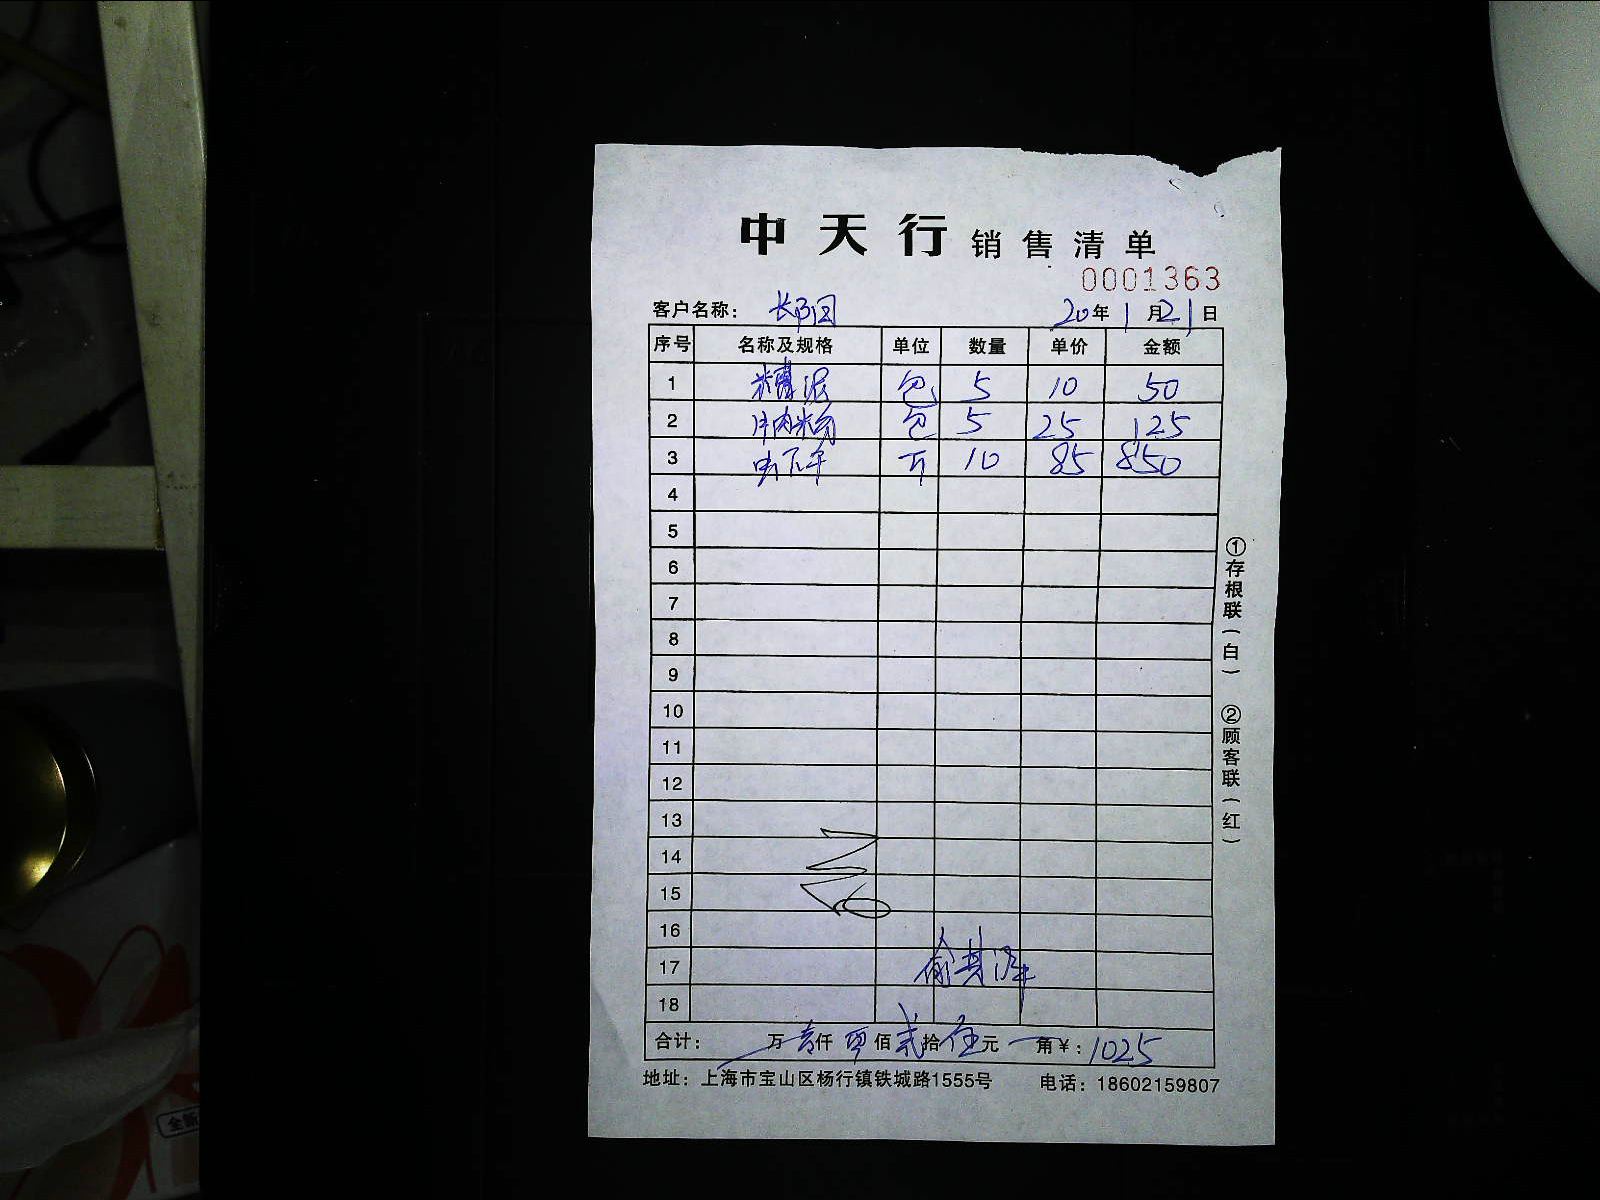 中天行 销售清单
0001363
客户名称： 20年1月21日
序号 名称及规格 单位 数量 单价 金额
1 包 5 10 50
2 牛肉粉 包 5 25 125
3 10 85 850
4
5
6
7
8
9
10
11
12
13
14
15
16
17
18
合计： 万壹仟零佰贰拾伍元 角￥：1025
地址：上海市宝山区杨行镇铁城路1555号 电话：18602159807
①存根联（白） ②顾客联（红）
全新